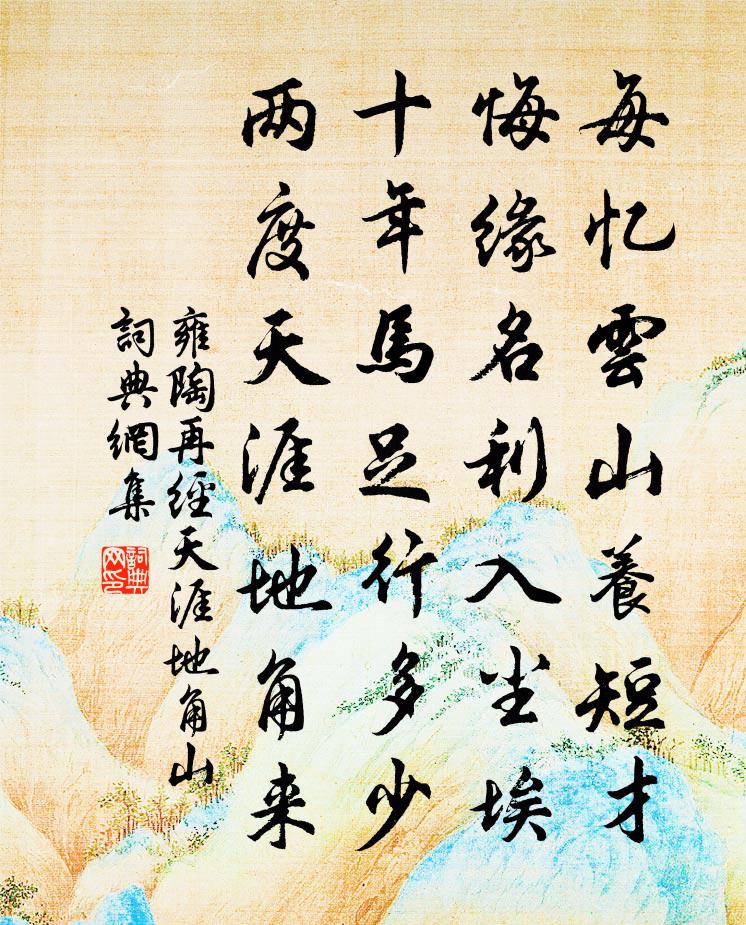 每忆雲山養短才
悔缘名利入尘埃
十年馬足行多少
两度天涯地角来
雍陶再經天涯地角山
詞典網集
詞典网印